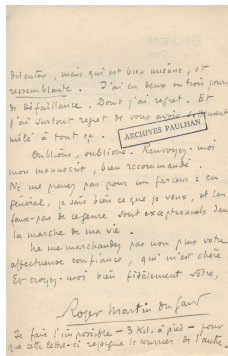 BELLEME
ORNE
orienter, mais qui est bien mienne, et
ressemblante. J'ai eu deux ou trois jours
de défaillance. Dont j'ai regret. Et
j'ai surtout regret de vous avoir
mêlé à tout ça.
ARCHIVES PAULHAN
Oublions, oublions. Renvoyez-moi
mon manuscrit, bien recommandé.
Ne me prenez pas pour un farceur : en
général, je sais bien ce que je veux, et les
faux-pas de ce genre sont exceptionnels dans
la marche de ma vie.
Ne me marchandez pas non plus votre
affectueuse confiance, qui m'est chère
Et croyez-moi bien fidèlement vôtre,
Roger Martin du Gard
Je fais l'impossible – 3 Kil. à pied – pour
que cette lettre-ci rejoigne le courrier de l'autre.